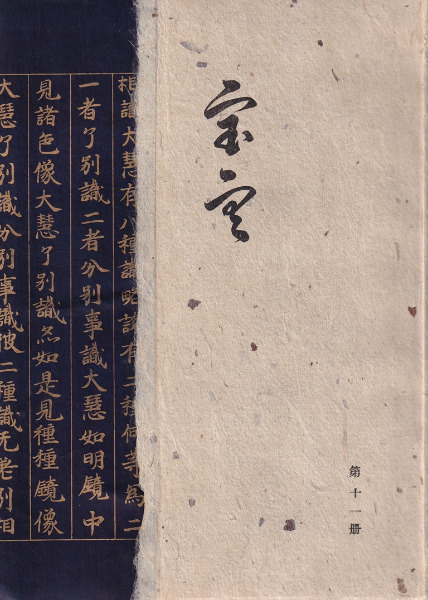 宝雲
第十一册
相識大慧有八種識略説有二種何等為二
一者了別識二者分別事識大慧如明鏡中
見諸色像大慧了別識亦如是見種種鏡像
大慧了別識分別事識彼二種識无差別相